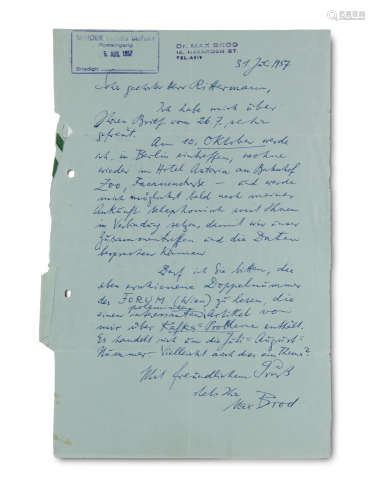 Posteingang
5. AUG. 1957
Erledigt:
Dr. MAX BROD
16, HAYARDEN ST.
TEL-AVIV
31 Juli 1957
Sehr geehrter Herr Rittermann,
Ich habe mich über
Ihren Brief vom 26.7. sehr
gefreut.
Am 10. Oktober werde
ich in Berlin eintreffen, wohne
wieder im Hotel Astoria am Bahnhof
Zoo, Fasanenstraße – und werde
mich möglichst bald nach meiner
Ankunft telephonisch mit Ihnen
in Verbindung setzen, damit wir unser
Zusammentreffen und die Daten
besprechen können
Darf ich Sie bitten, die
eben erschienene Doppelnummer
des FORUM (Wien) zu lesen, die
einen polemischen Artikel von
mir über Kafka-Probleme enthält.
Es handelt sich um die Juli-August-
Nummer. Vielleicht auch das ein Thema?
Mit freundlichem Gruß
stets Ihr
Max Brod.